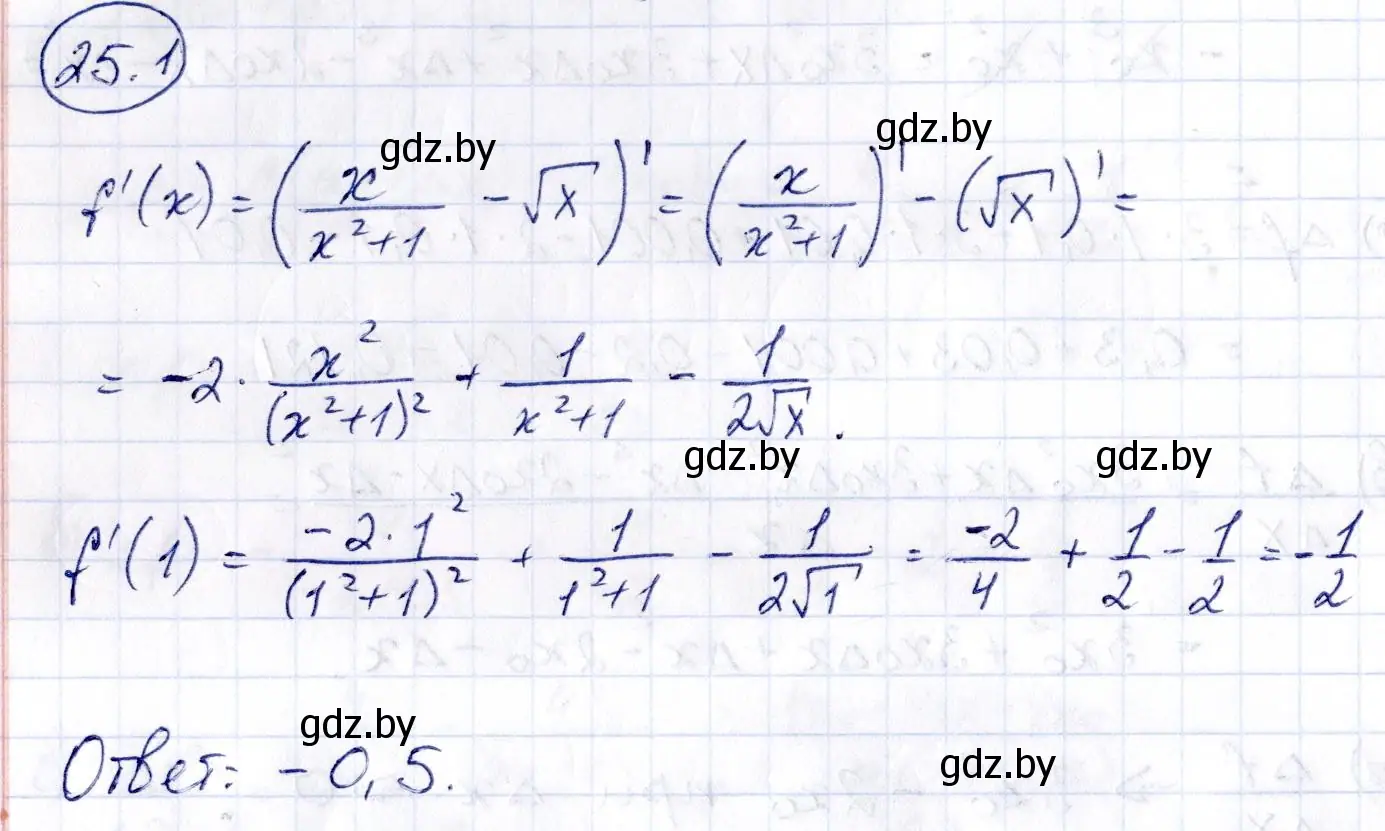 25.1
gdz.by gdz.by
f'(x) = (x/(x²+1) - √x)' = (x/(x²+1))' - (√x)' =
= -2 · x²/(x²+1)² + 1/(x²+1) - 1/(2√x).
gdz.by gdz.by
f'(1) = (-2·1²)/(1²+1)² + 1/(1²+1) - 1/(2√1) = -2/4 + 1/2 - 1/2 = -1/2
gdz.by
Ответ: -0,5.
gdz.by